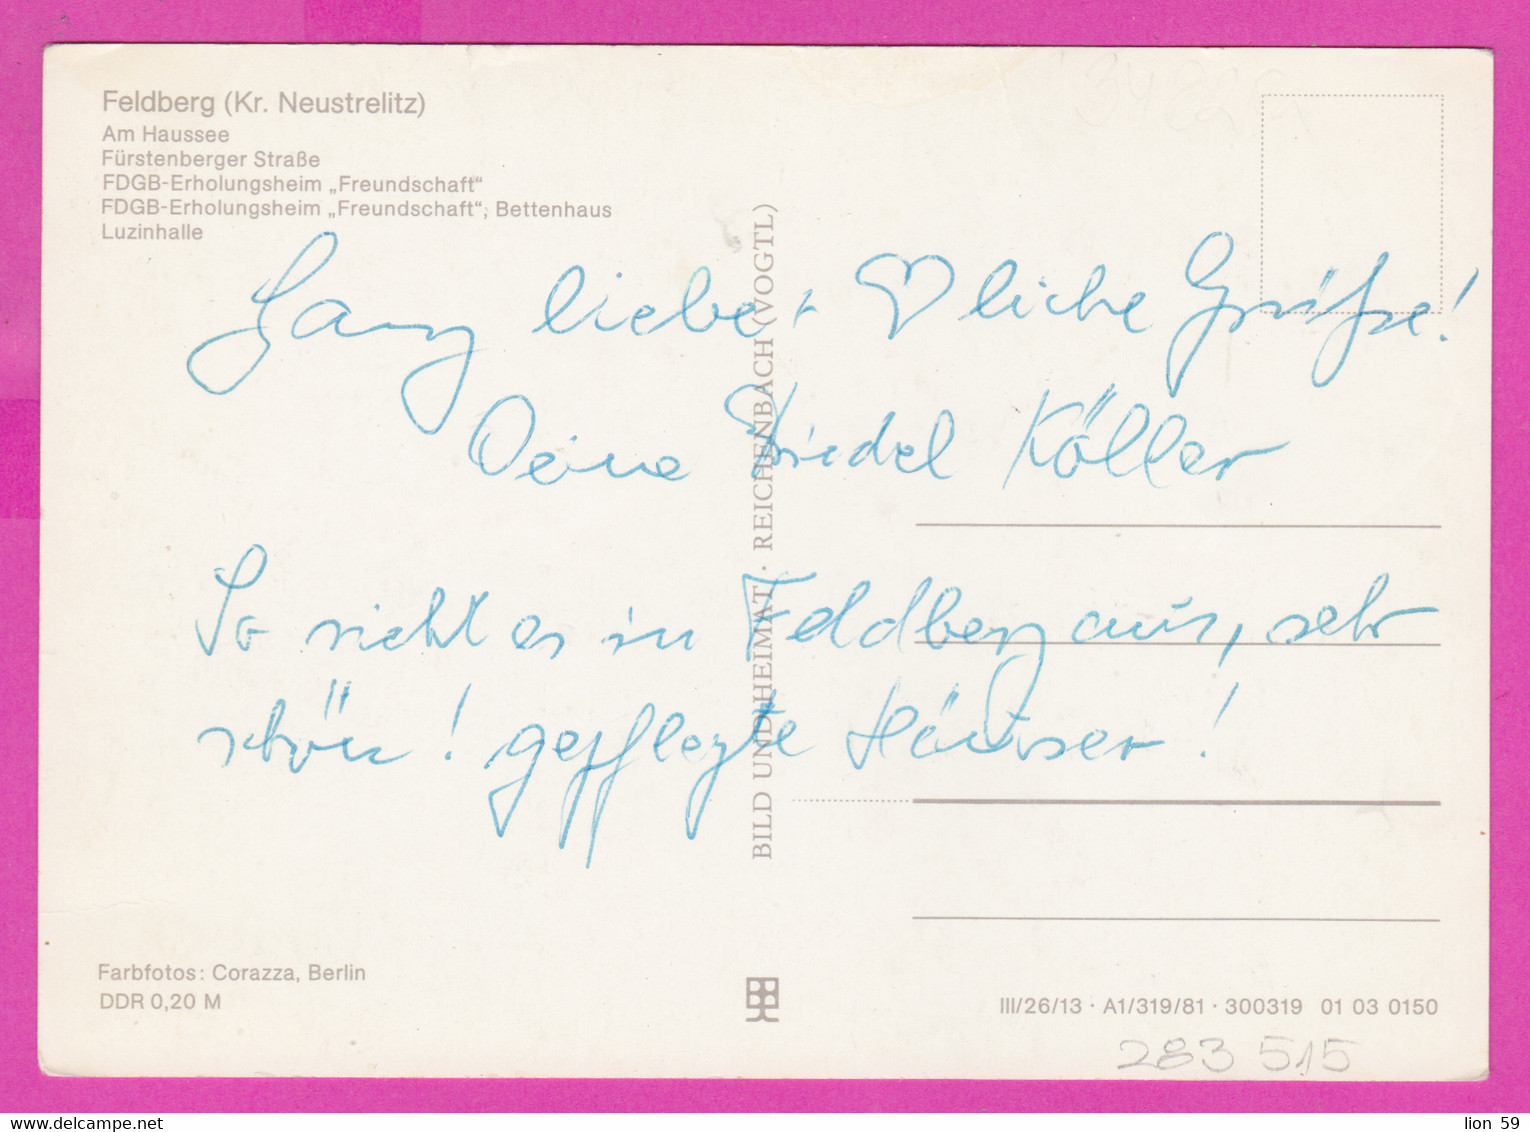 Feldberg (Kr. Neustrelitz)
Am Haussee
Fürstenberger Straße
FDGB-Erholungsheim „Freundschaft“
FDGB-Erholungsheim „Freundschaft“, Bettenhaus
Luzinhalle
Ganz liebe + ♡liche Grüße!
Deine Friedel Köller
So sieht es in Feldberg aus, sehr
schön! gepflegte Häuser!
BILD UND HEIMAT · REICHENBACH (VOGTL)
Farbfotos: Corazza, Berlin
DDR 0,20 M
III/26/13 · A1/319/81 · 300319 01 03 0150
283 515
delcampe.net
lion 59